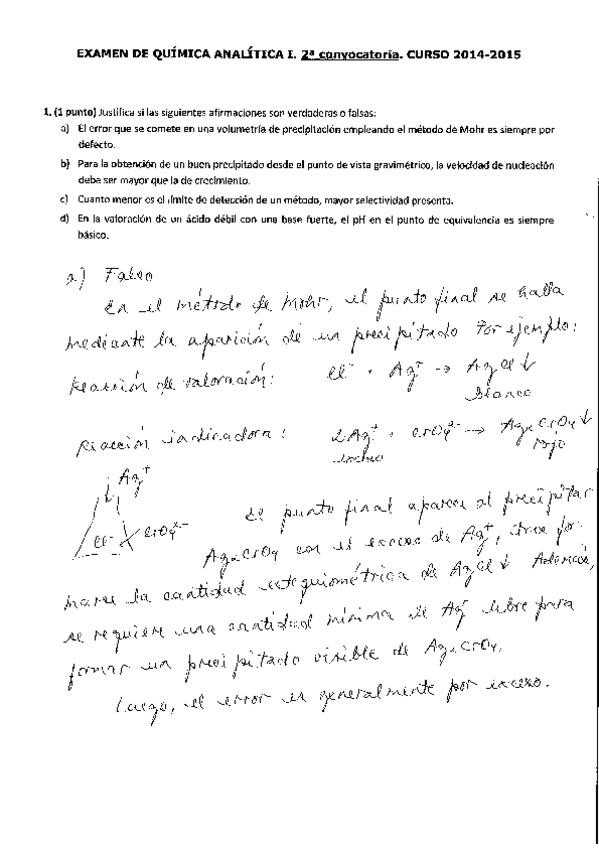 EXAMEN DE QUÍMICA ANALÍTICA I. 2ª convocatoria. CURSO 2014-2015
1. (1 punto) Justifica si las siguientes afirmaciones son verdaderas o falsas:
a) El error que se comete en una volumetría de precipitación empleando el método de Mohr es siempre por
defecto.
b) Para la obtención de un buen precipitado desde el punto de vista gravimétrico, la velocidad de nucleación
debe ser mayor que la de crecimiento.
c) Cuanto menor es el límite de detección de un método, mayor selectividad presenta.
d) En la valoración de un ácido débil con una base fuerte, el pH en el punto de equivalencia es siempre
básico.
a) Falso
En el método de Mohr, el punto final se halla
mediante la aparición de un precipitado Por ejemplo:
Reacción de valoración: Cl⁻ + Ag⁺ → AgCl↓
blanco
Reacción indicadora: 2Ag⁺ + CrO₄²⁻ → Ag₂CrO₄↓
rojo
Ag⁺
Cl⁻ CrO₄²⁻
El punto final aparece al precipitar
Ag₂CrO₄ con el exceso de Ag⁺, tras for
marse la cantidad estequiométrica de AgCl↓ Además,
se requiere una cantidad mínima de Ag⁺ libre para
formar un precipitado visible de Ag₂CrO₄.
Luego, el error es generalmente por exceso.